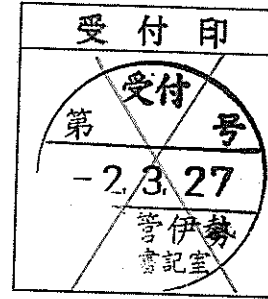 受付印
受付
第 号
-2.3.27
伊勢
書記室